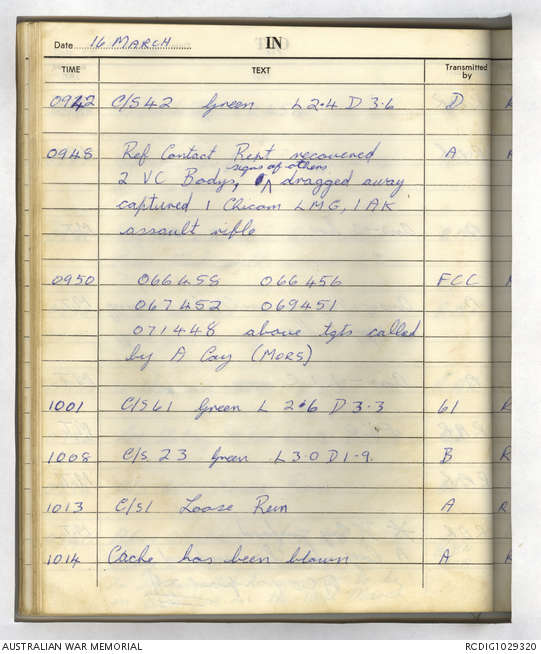 Date 16 MARCH IN
TIME TEXT Transmitted by
0942 C/S 42 Green L 2.4 D 3.6 D
0948 Ref Contact Rept recovered A
signs of others
2 VC Body, dragged away
captured 1 Chicom LMG, 1 AK
assault rifle
0950 066458 066456 FCC
067452 069451
071448 above tgts called
by A Coy (MORS)
1001 C/S 61 Green L 2.6 D 3.3 61 R
1008 C/S. 23 Green L 3.0 D 1.9. B R
1013 C/S 1 Loose Rein A R
1014 Cache has been blown A
AUSTRALIAN WAR MEMORIAL RCDIG1029320